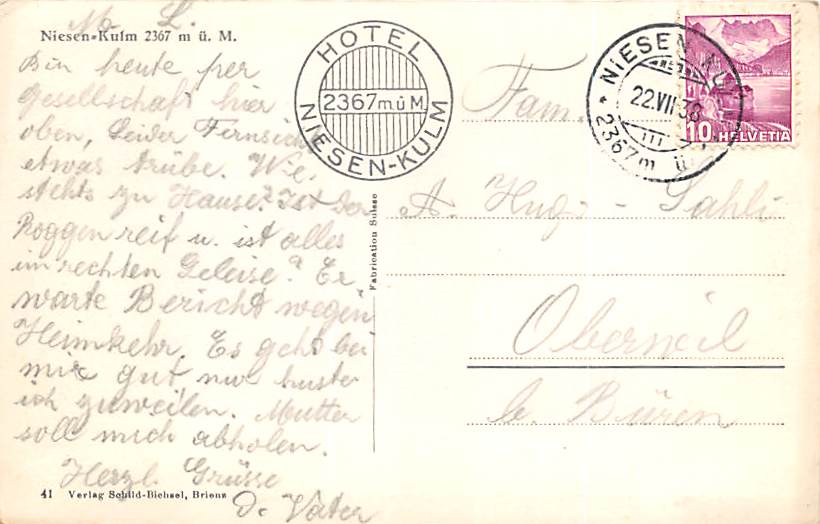 M. L.
Niesen-Kulm 2367 m ü. M.
Bin heute per
Gesellschaft hier
oben, Leider Fernsicht
etwas trübe. Wie
stehts zu Hause? Ist der
Roggen reif u. ist alles
im rechten Geleise? Er
warte Bericht wegen
Heimkehr. Es geht bei
mir gut, nur huste
ich zuweilen. Mutter
soll mich abholen.
Herzl. Grüsse
D. Vater
41 Verlag Schild-Bichsel, Brienz
HOTEL
2367 m ü M
NIESEN-KULM
Fabrication Suisse
NIESEN-KULM
22.VII.38
III
2367 m ü
10 HELVETIA
Fam.
A. Hugi-Sahli
Oberwil
b. Büren